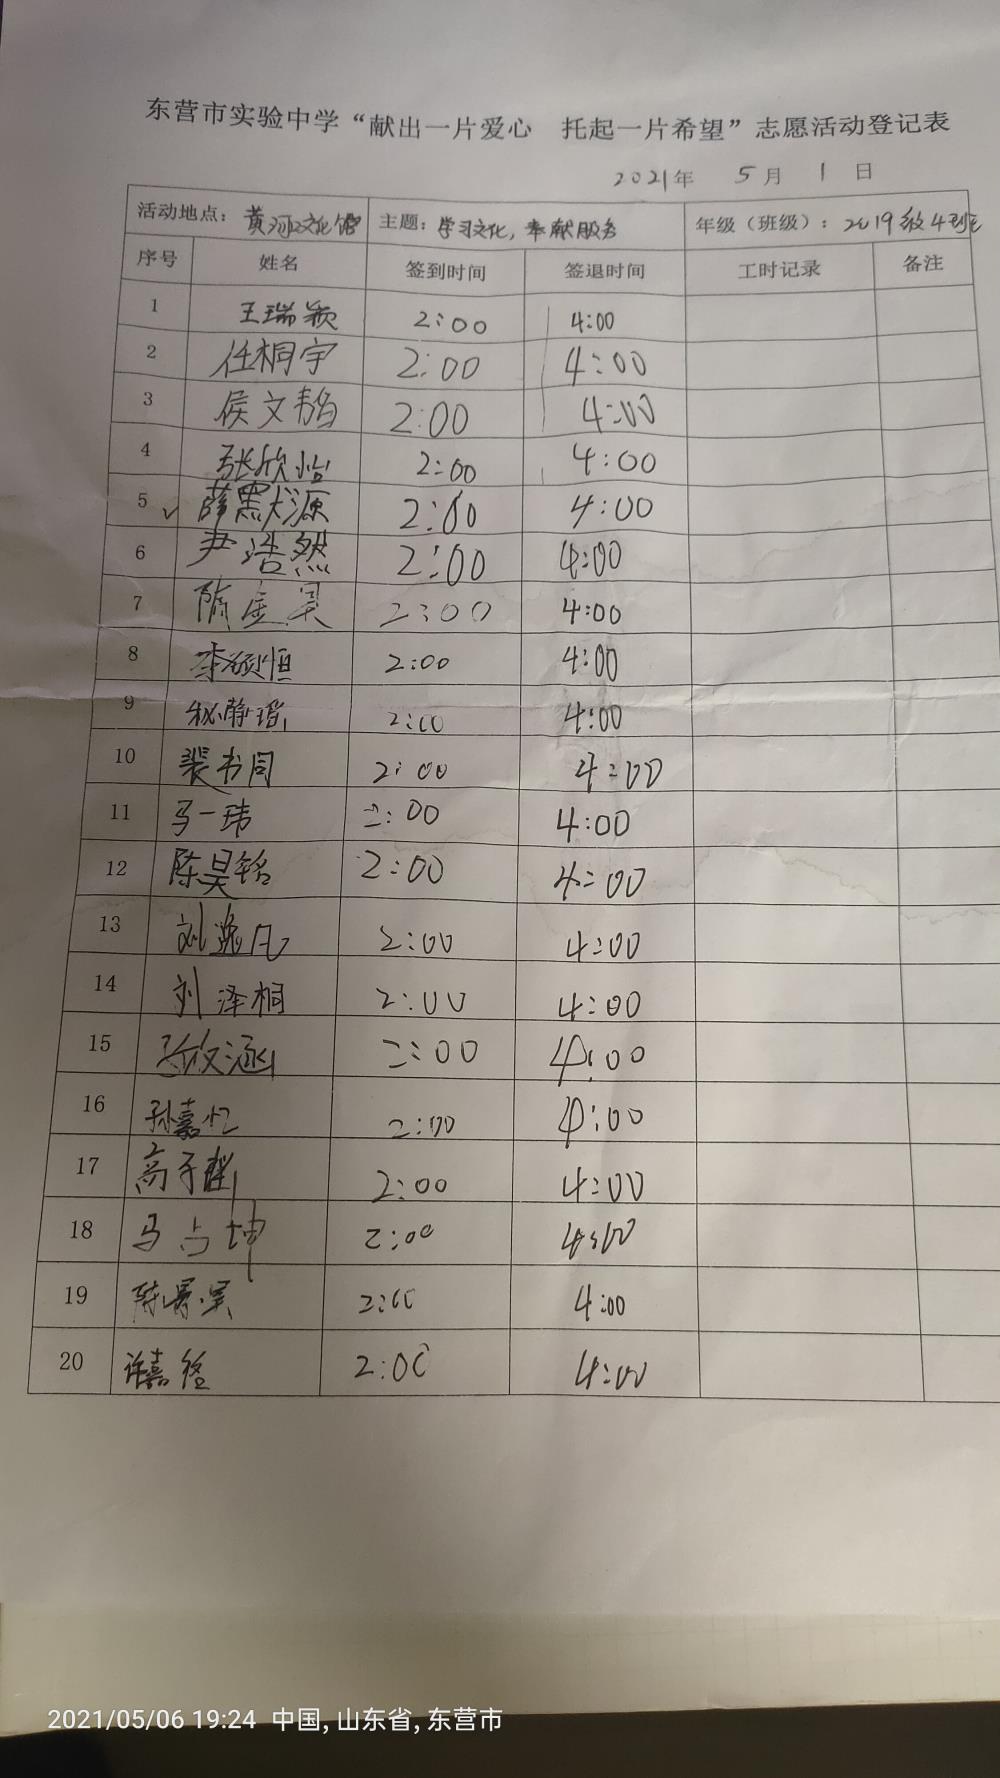 东营市实验中学“献出一片爱心 托起一片希望”志愿活动登记表
2021年 5月 1日
活动地点：黄河文化馆 主题：学习文化，奉献服务 年级（班级）：2019级4班
序号 姓名 签到时间 签退时间 工时记录 备注
1 王瑞颖 2:00 4:00
2 任桐宇 2:00 4:00
3 侯文韬 2:00 4:00
4 张欣怡 2:00 4:00
5 ✓ 薛默源 2:00 4:00
6 尹浩然 2:00 4:00
7 隋 昊 2:00 4:00
8 李硕恒 2:00 4:00
9 秘静瑶 2:00 4:00
10 裴书同 2:00 4:00
11 马一玮 2:00 4:00
12 陈昊铭 2:00 4:00
13 刘逸凡 2:00 4:00
14 刘泽桐 2:00 4:00
15 涵 2:00 4:00
16 孙嘉忆 2:00 4:00
17 高子 2:00 4:00
18 马占坤 2:00 4:00
19 陈 昊 2:00 4:00
20 许嘉 2:00 4:00
2021/05/06 19:24 中国, 山东省, 东营市